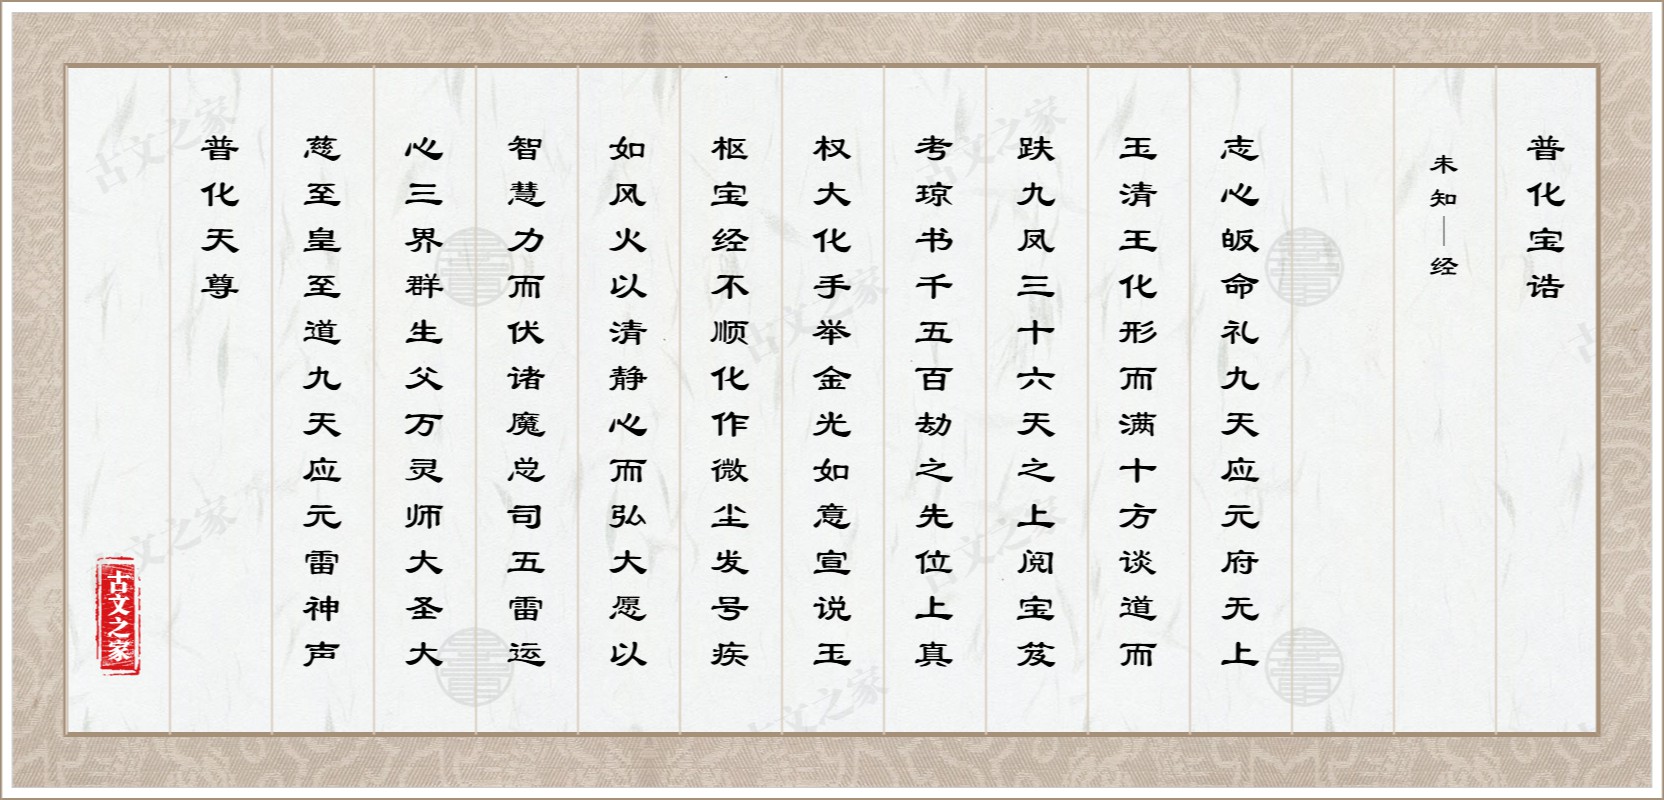 普化宝诰
未知｜经
志心皈命礼九天应元府无上
玉清王化形而满十方谈道而
趺九凤三十六天之上阅宝笈
考琼书千五百劫之先位上真
权大化手举金光如意宣说玉
枢宝经不顺化作微尘发号疾
如风火以清静心而弘大愿以
智慧力而伏诸魔总司五雷运
心三界群生父万灵师大圣大
慈至皇至道九天应元雷神声
普化天尊
古文之家